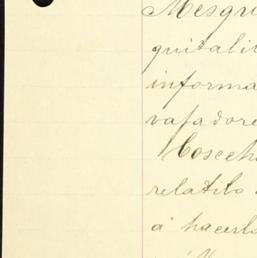 Mesqu
quitali
informa
vafadore
Cosech
relatilo
á hacerlo